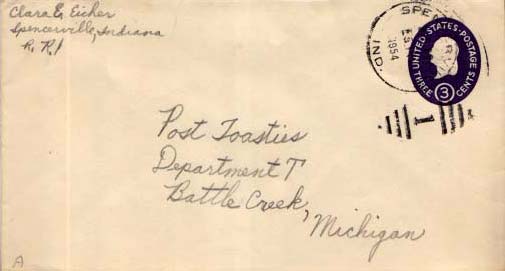 Clara E. Eicher
Spencerville, Indiana
R. R. 1
SPE
1954
IND.
UNITED·STATES·POSTAGE
THREE 3 CENTS
1
Post Toasties
Department T
Battle Creek,
Michigan
A